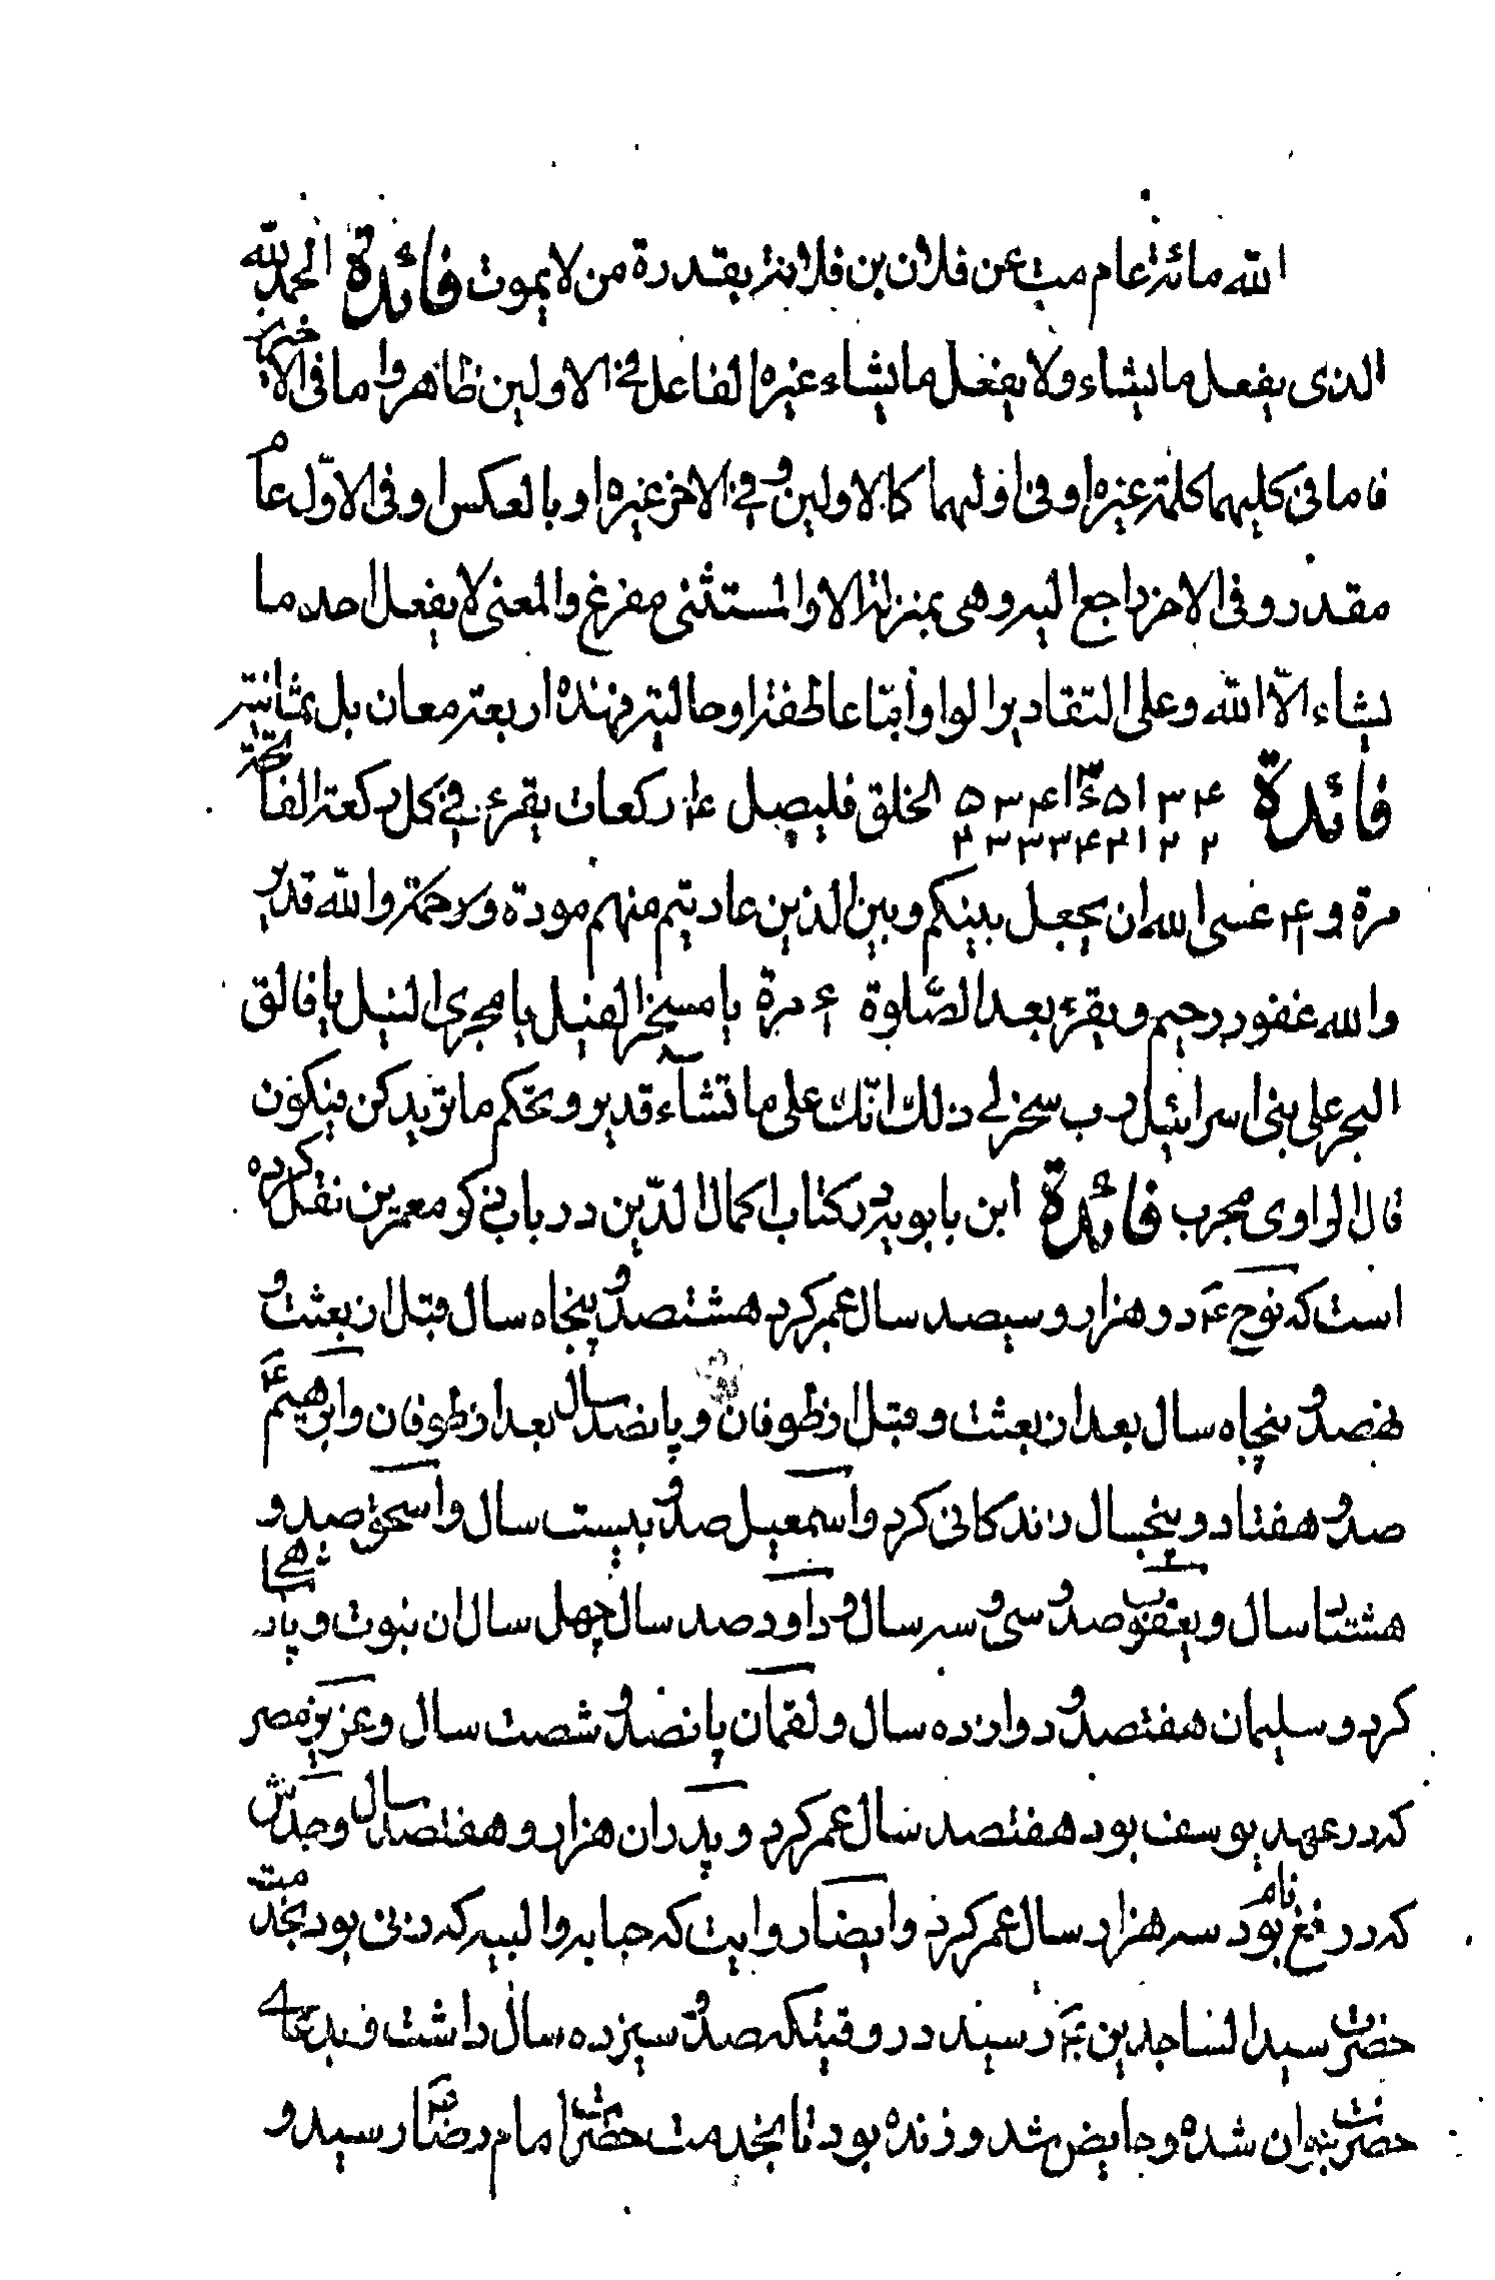 الله مائة عام مت عن فلان بن فلانة بقدرة من لا يموت فائدة الحمد لله
الذى يفعل ما يشاء ولا يفعل ما يشاء غيره الفاعل فى الاولين ظاهر واما فى الاخيرين
فاما فى كليهما كلمة غيره او فى اوليهما كالاولين وفى الاخر غيره او بالعكس او فى الاول عام
مقدر وفى الاخر راجع اليه وهى بمنزلة الا والمستثنى مفرغ والمعنى لا يفعل احد ما
يشاء الّا الله وعلى التقادير الواو أمّا عاطفة او حالية فهذه اربعة معان بل ثمانية
فائدة الخلق فليصل ۴ ركعات يقرء فى كل ركعة الفاتحة
مرة و عسى الله ان يجعل بينكم وبين الذين عاديتم منهم مودة ورحمة والله قدير
والله غفور رحيم ويقرء بعد الصّلوة مرة يا مسخر الفيل يا مجرى النيل يا فالق
البحر على بنى اسرائيل رب سخر لى ذلك انّك على ما تشآء قدير وتحكم ما تريد كن فيكون
قال الراوى مجرب فائدة ابن بابويه در كتاب اكمال الدّين در باب ذكر معمرين نقل كرده
است كه نوح ع دو هزار وسيصد سال عمر كرد هشتصد و پنجاه سال قبل از بعثت و
نهصد و پنجاه سال بعد از بعثت و قبل از طوفان و پانصد سال بعد از طوفان وابرهيم ع
صد و هفتاد و پنجسال زندكانى كرد واسمعيل صد و بيست سال واسحق صد و
هشتاد سال و يعقوب صد و سى و سه سال و داود صد سال چهل سال ان نبوت و پادشاهى
كرد و سليمان هفتصد و دوازده سال و لقمان پانصد و شصت سال و عزيز مصر
كه در عهد يوسف بود هفتصد سال عمر كرد و پدر ان هزار و هفتصد سال و جدش
كه در نام بود سه هزار سال عمر كرد وايضا روايت كه حبابه والبيه كه زنى بود بخدمت
حضرت سيد الساجدين ع رسيد در وقتيكه صد و سيزده سال داشت و بدعاى
حضرت جوان شده و حايض شد و زنده بود تا بخدمت حضرت امام رضا رسيد و